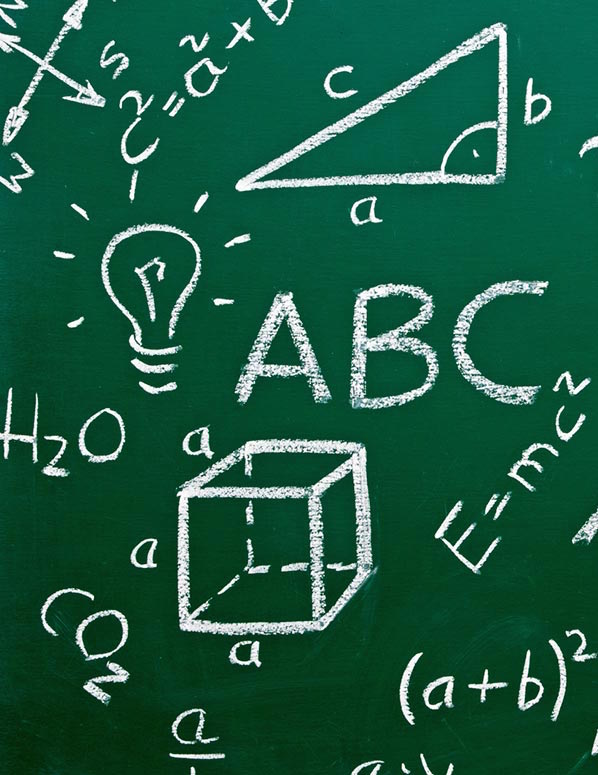 S
W
c² = a² + b
c
b
a
ABC
H₂O
E = mc²
a
a
a
CO₂
(a+b)²
a